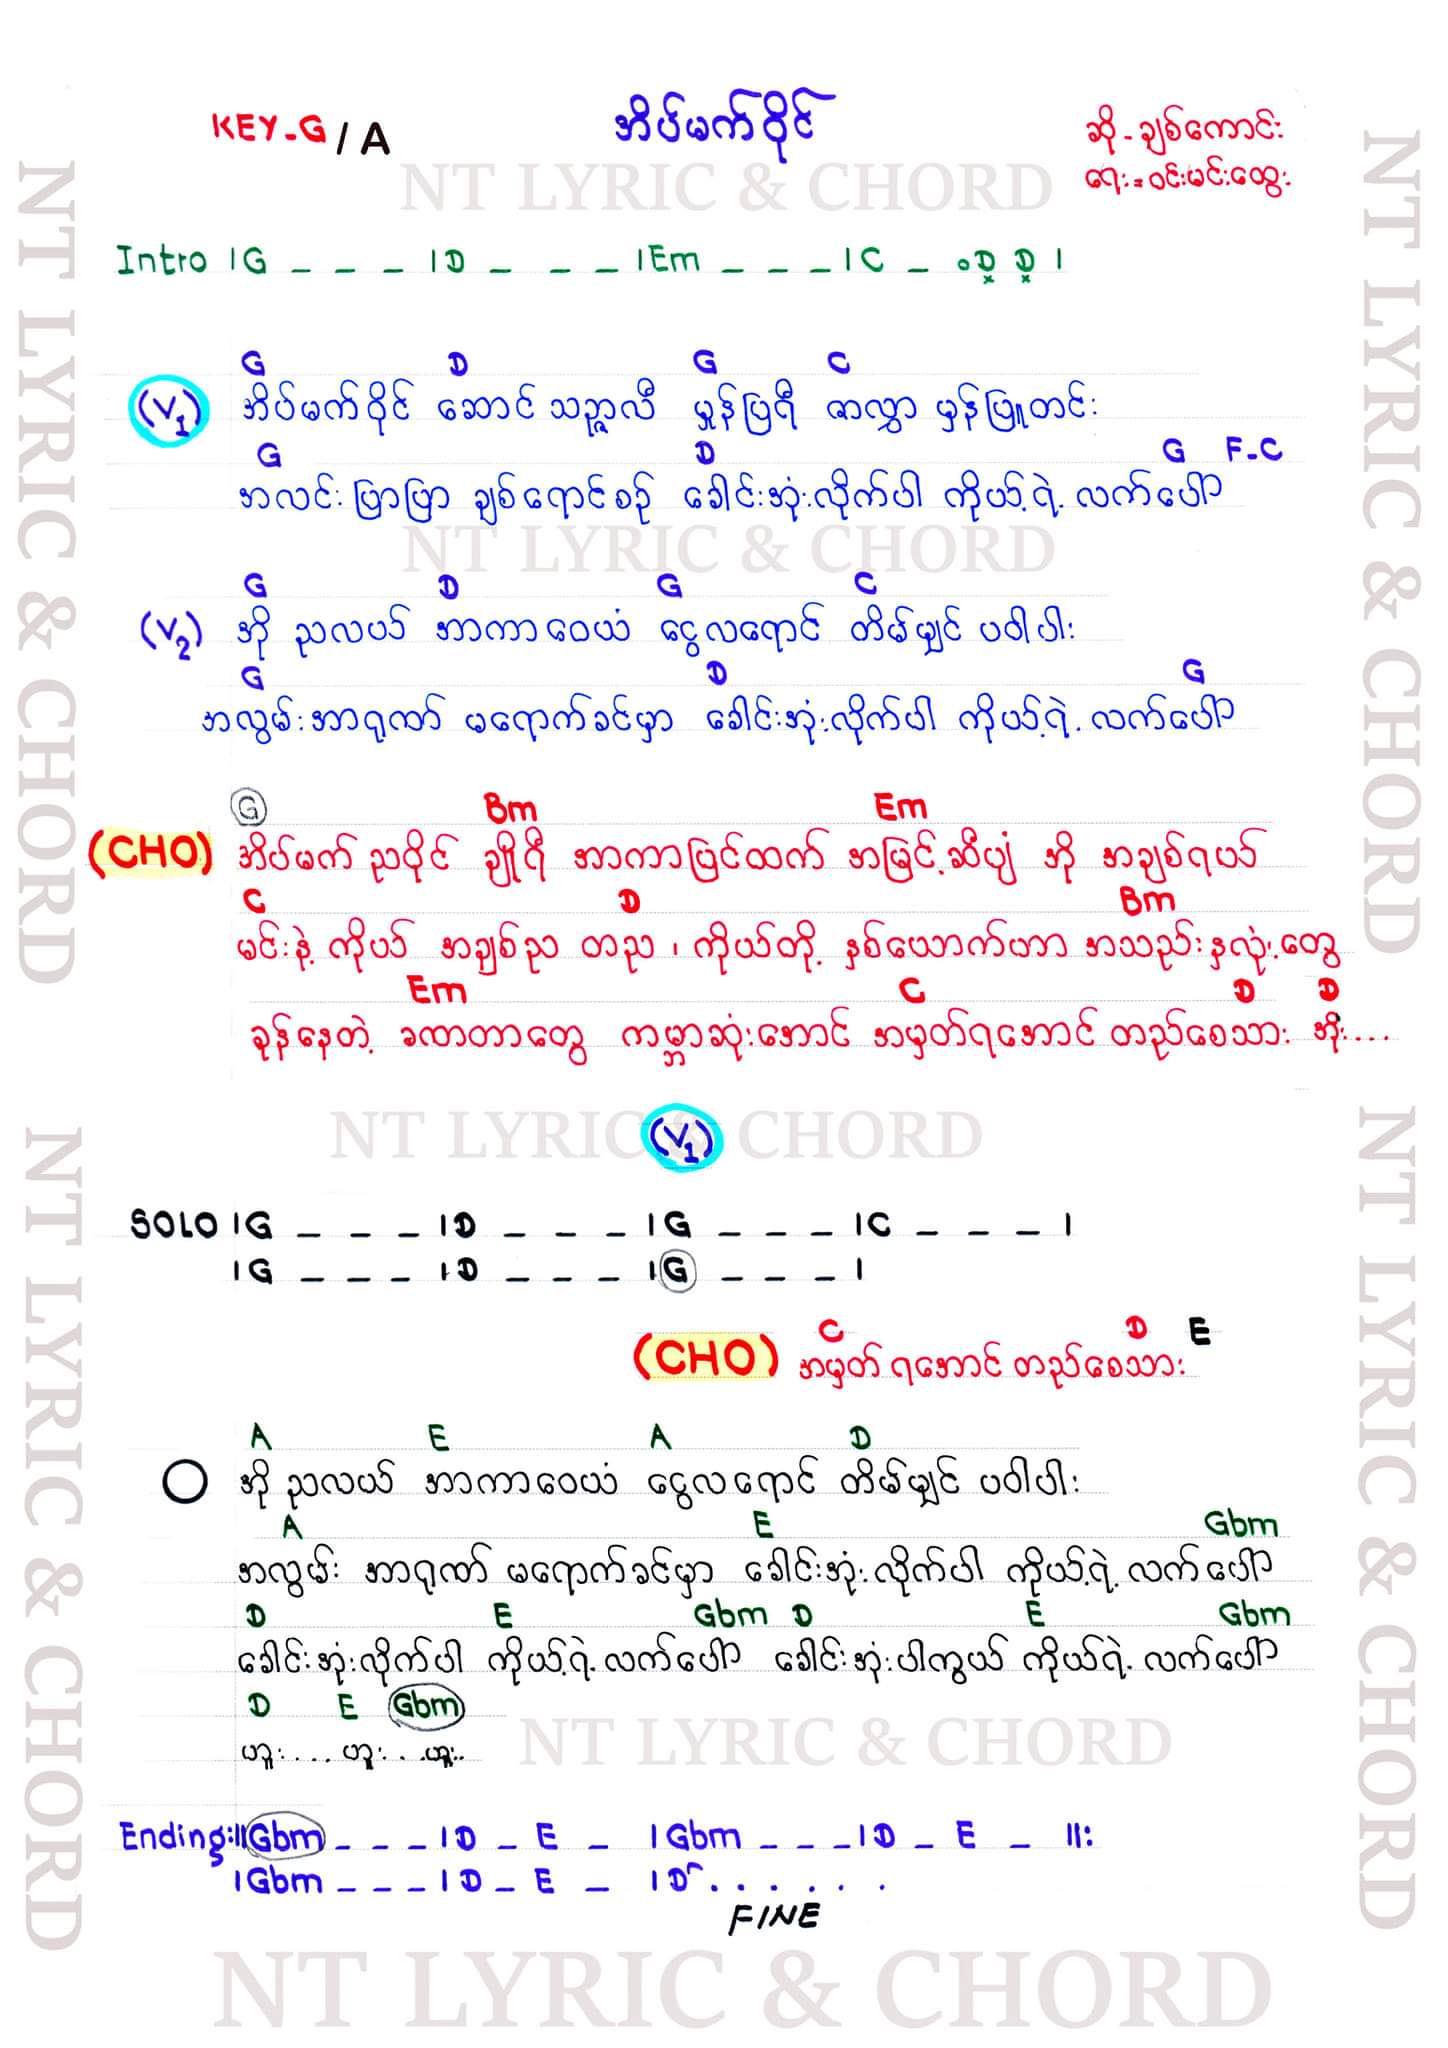 KEY-G / A
အိပ်မက်ဝိုင်
ဆို - ချစ်ကောင်း
ရေး = ဝင်းမင်းထွေး
NT LYRIC & CHORD
Intro |G _ _ _ |D _ _ _ |Em _ _ _ |C _ .D D |
G D G C
(V1) အိပ်မက်ဝိုင် ဆောင်သဉ္ဇာလီ မှုန်ပြရီ ဇာလွှာ မှန်ပြူတင်း
G D G F-C
အလင်းပြာပြာ ချစ်ရောင်စဉ် ခေါင်းအုံးလိုက်ပါ ကိုယ့်ရဲ့ လက်ပေါ်
NT LYRIC & CHORD
G D G C
(V2) အို ညလယ် အာကာဝေယံ ငွေလရောင် တိမ်မျှင် ပဝါပါး
G D G
အလွမ်းအာရုဏ် မရောက်ခင်မှာ ခေါင်းအုံးလိုက်ပါ ကိုယ့်ရဲ့ လက်ပေါ်
G Bm Em
(CHO) အိပ်မက်ညဝိုင် ချိုရီ အာကာပြင်ထက် အမြင့်ဆီပျံ အို အချစ်ရယ်
C D Bm
မင်းနဲ့ ကိုယ် အချစ်ည တည ၊ ကိုယ်တို့ နှစ်ယောက်ဟာ အသည်းနှလုံးတွေ
Em C D D
ခုန်နေတဲ့ ခဏတာတွေ ကမ္ဘာဆုံးအောင် အမှတ်ရအောင် တည်စေသား အိုး....
NT LYRIC & CHORD
(V1)
SOLO |G _ _ _ |D _ _ _ |G _ _ _ |C _ _ _ |
|G _ _ _ |D _ _ _ |G _ _ _ |
C D E
(CHO) အမှတ်ရအောင် တည်စေသား
A E A D
O အို ညလယ် အာကာဝေယံ ငွေလရောင် တိမ်မျှင် ပဝါပါး
A E Gbm
အလွမ်း အာရုဏ် မရောက်ခင်မှာ ခေါင်းအုံးလိုက်ပါ ကိုယ့်ရဲ့ လက်ပေါ်
D E Gbm D E Gbm
ခေါင်းအုံးလိုက်ပါ ကိုယ့်ရဲ့ လက်ပေါ် ခေါင်းအုံးပါကွယ် ကိုယ်ရဲ့ လက်ပေါ်
D E Gbm
ဟူး.... ဟူး... ဟူး..
NT LYRIC & CHORD
Ending:||Gbm _ _ _ |D _ E _ |Gbm _ _ _ |D _ E _ ||:
|Gbm _ _ _ |D _ E _ |D . . . . . .
FINE
NT LYRIC & CHORD
NT LYRIC & CHORD
NT LYRIC & CHORD
NT LYRIC & CHORD
NT LYRIC & CHORD